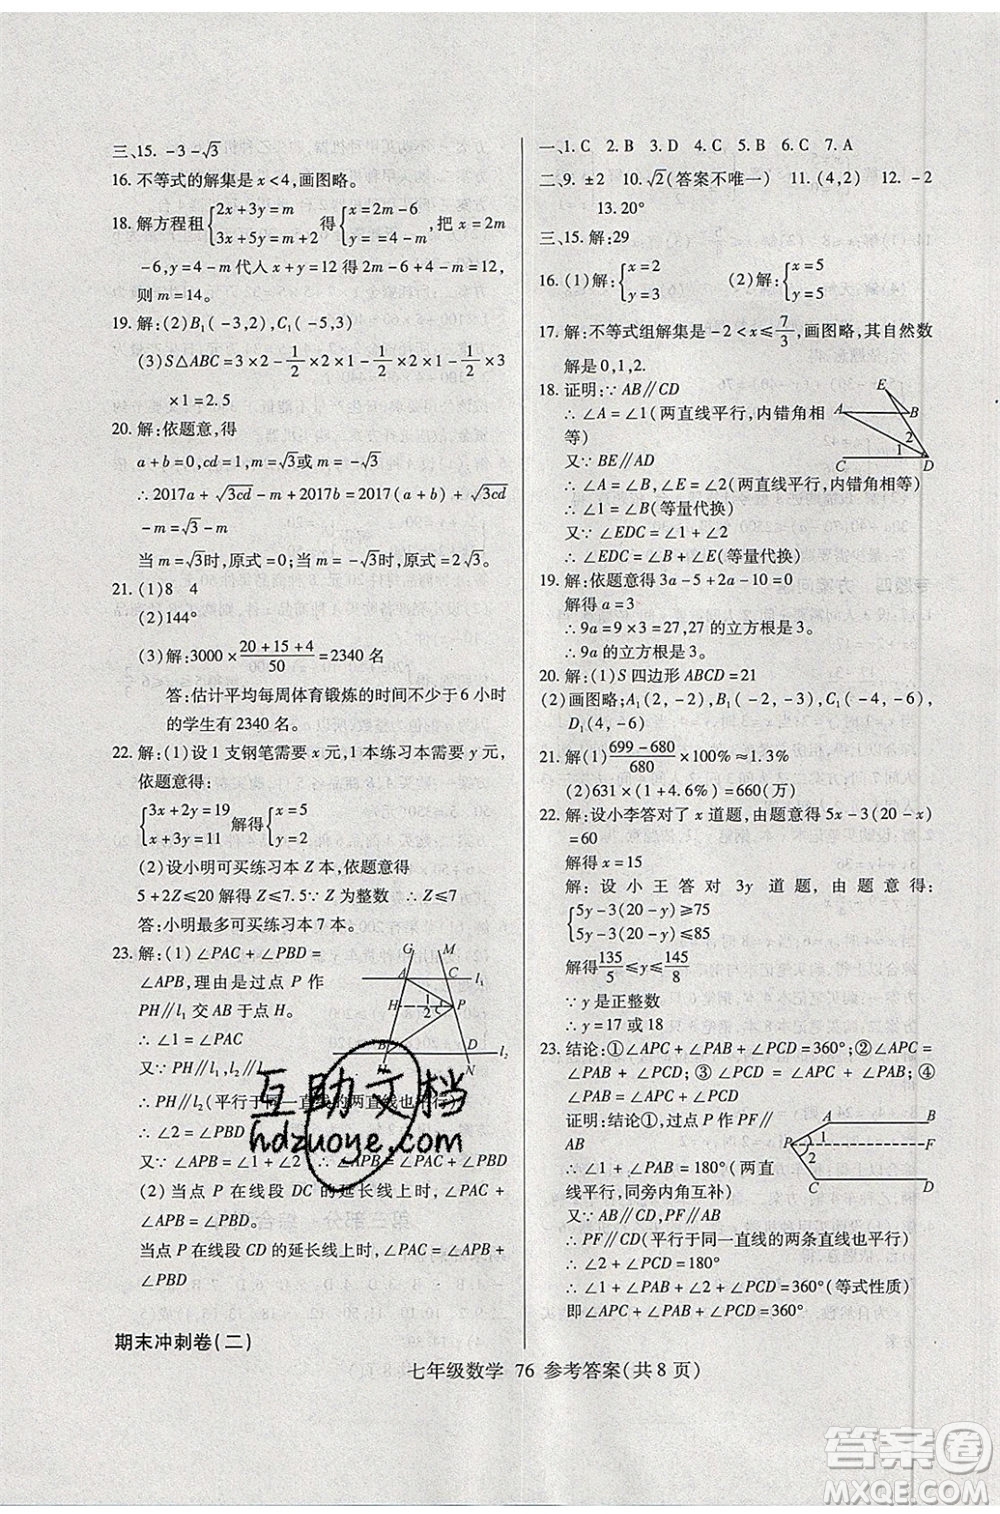 三、15. -3-√3
16. 不等式的解集是 x<4,画图略。
18. 解方程租{2x+3y=m 3x+5y=m+2 得{x=2m-6 y=-m+4,把 x=2m
-6,y=4-m 代人 x+y=12,得 2m-6+4-m=12,
则 m=14。
19. 解:(2)B₁(-3,2),C₁(-5,3)
(3)S△ABC=3×2-1/2×2×1-1/2×2×1-1/2×3
×1=2.5
20. 解:依题意,得
a+b=0,cd=1,m=√3或 m=-√3
∴2017a+√3cd-m+2017b=2017(a+b)+√3cd
-m=√3-m
当 m=√3时,原式=0;当 m=-√3时,原式=2√3。
21. (1)8 4
(2)144°
(3)解:3000×(20+15+4)/50=2340 名
答:估计平均每周体育锻炼的时间不少于 6 小时
的学生有 2340 名。
22. 解:(1)设 1 支钢笔需要 x 元,1 本练习本需要 y 元,
依题意得:
{3x+2y=19 x+3y=11 解得{x=5 y=2
(2)设小明可买练习本 Z 本,依题意
5+2Z≤20 解得 Z≤7.5∵Z 为整数 ∴Z≤7
答:小明最多可买练习本 7 本。
23. 解:(1)∠PAC+∠PBD=
∠APB,理由是过点 P 作
PH∥l₁ 交 AB 于点 H,
∴∠1=∠PAC
又∵PH∥l₁
∴PH∥l₂(平行于同一直线的两直线也平行)
∴∠2=∠PBD
又∵∠APB=∠1+∠2 ∴∠APB=∠PAC+∠PBD
(2)当点 P 在线段 DC 的延长线上时,∠PAC+
∠APB=∠PBD。
当点 P 在线段 CD 的延长线上时,∠PAC=∠APB+
∠PBD
G M
A C l₁
H 1 2 P
B D l₂
N
期末冲刺卷(二)
一、1.C 2.B 3.D 4.C 5.B 6.C 7.A
二、9. ±2 10.√2(答案不唯一) 11.(4,2) 12. -2
13.20°
三、15.解:29
16. (1)解:{x=2 y=3 (2)解:{x=5 y=5
17. 解:不等式组解集是-2<x≤7/3,画图略,其自然数
解是 0,1,2.
18. 证明:∵AB∥CD
∴∠A=∠1(两直线平行,内错角相
等)
又∵BE∥AD
∴∠A=∠B,∠E=∠2(两直线平行,内错角相等)
∴∠B=∠1(等量代换)
又∵∠EDC=∠1+∠2
∴∠EDC=∠B+∠E(等量代换)
E
A B
2
1
C D
19. 解:依题意得 3a-5+2a-10=0
解得 a=3
∴9a=9×3=27,27 的立方根是 3。
∴9a 的立方根是 3。
20. 解:(1)S 四边形 ABCD=21
(2)画图略;A₁(2,-2),B₁(-2,-3),C₁(-4,-6),
D₁(4,-6)
21. 解(1)(699-680)/680×100%≈1.3%
(2)631×(1+4.6%)=660(万)
22. 解:设小李答对了 x 道题,由题意得 5x-3(20-x)
=60
解得 x=15
解:设小王答对 3y 道题,由题意得:
{5y-3(20-y)≥75 5y-3(20-y)≤85
解得 135/5≤y≤145/8
∵y 是正整数
∴y=17 或 18
23. 结论:①∠APC+∠PAB+∠PCD=360°;②∠APC=
∠PAB+∠PCD;③∠APC=∠PCD-∠PAB;④
∠APC=∠PAB-∠PCD
证明:结论①,过点 P 作 PF∥
AB
∴∠1+∠PAB=180°(两直
线平行,同旁内角互补)
又∵PF∥AB
∴PF∥CD(平行于同一直线的两条直线也平行)
∴∠2+∠PCD=180°
∴∠1+∠2+∠PAB+∠PCD=360°(等式性质)
即∠APC+∠PAB+∠PCD=360°
A B
P 1 F
2
C D
七年级数学 76 参考答案(共 8 页)
互助文档
hdzuoye.com
答案圈
MXQE.COM